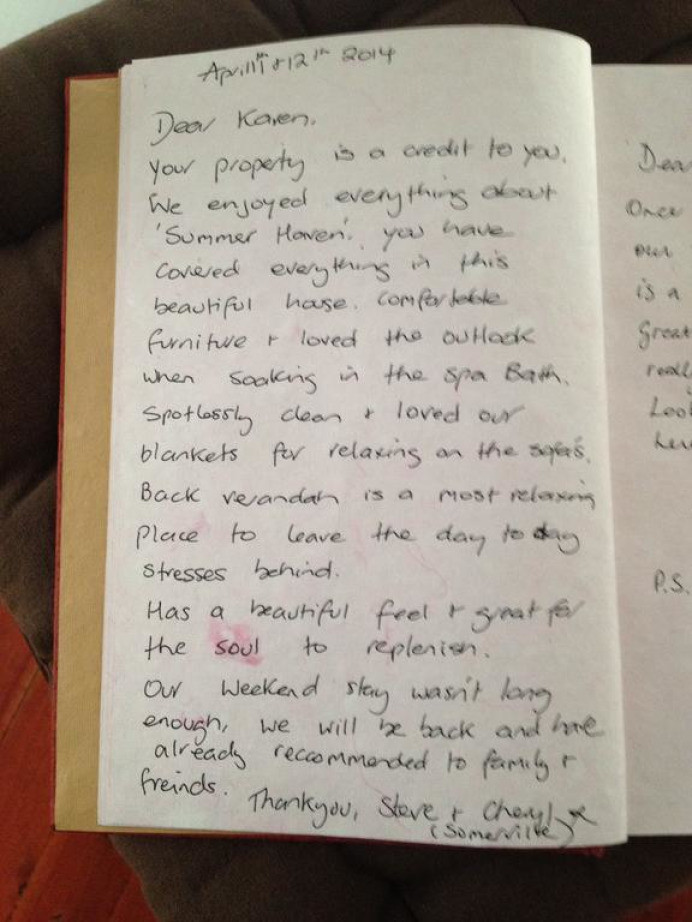 April 11th + 12th 2014
Dear Karen.
Your property is a credit to you.
We enjoyed everything about
'Summer Haven'. you have
covered everything in this
beautiful house. Comfortable
furniture + loved the outlook
when soaking in the spa Bath.
Spotlessly clean + loved our
blankets for relaxing on the sofa's.
Back verandah is a most relaxing
place to leave the day to day
stresses behind.
Has a beautiful feel + great for
the soul to replenish.
Our weekend stay wasn't long
enough, we will be back and have
already reccommended to family +
freinds.
Thankyou, Steve + Cheryl x
(Somerville)
Dear
Once
our
is a
Great
P.S.